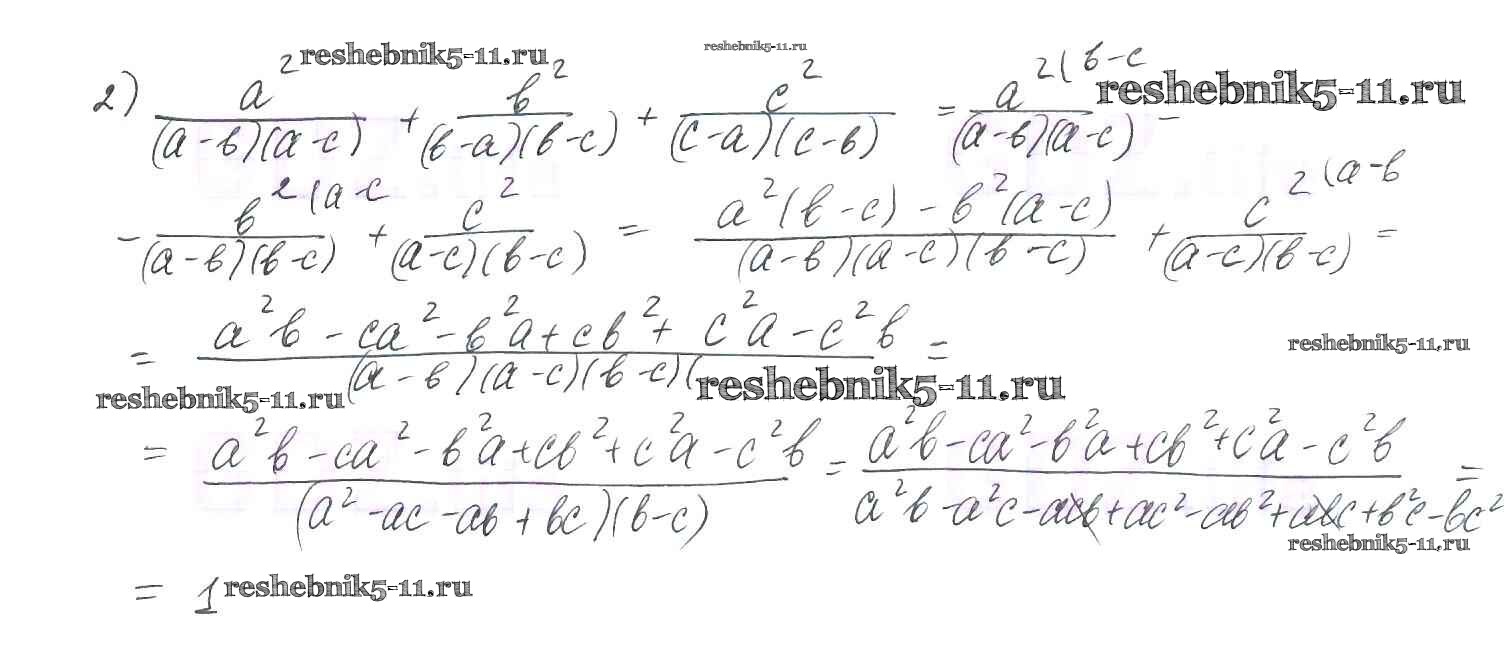 reshebnik5-11.ru reshebnik5-11.ru
2) a²/((a-в)(a-c)) + в²/((в-a)(в-c)) + c²/((c-a)(c-в)) = a²(в-c/((a-в)(a-c)) - reshebnik5-11.ru
- в²(a-c/((a-в)(в-c)) + c²/((a-c)(в-c)) = (a²(в-c) - в²(a-c))/((a-в)(a-c)(в-c)) + c²(a-в/((a-c)(в-c)) =
= (a²в - ca² - в²a + cв² + c²a - c²в)/((a-в)(a-c)(в-c)( =
reshebnik5-11.ru
reshebnik5-11.ru reshebnik5-11.ru
= (a²в - ca² - в²a + cв² + c²a - c²в)/((a² - ac - aв + вc)(в-c)) = (a²в - ca² - в²a + cв² + c²a - c²в)/(a²в - a²c - acв + ac² - aв² + aвc + в²c - вc²) =
reshebnik5-11.ru
= 1 reshebnik5-11.ru